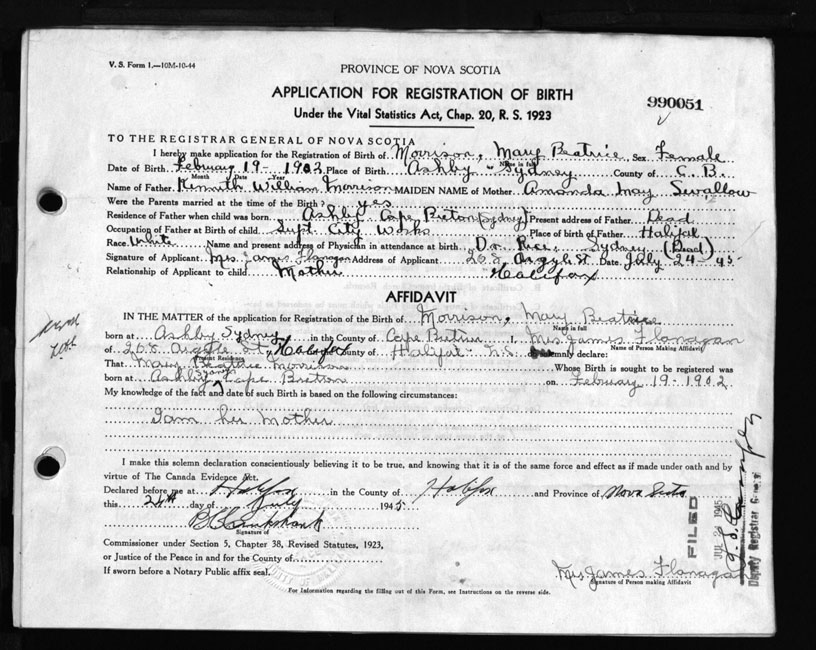 V. S. Form 1.—10M-10-44
PROVINCE OF NOVA SCOTIA
APPLICATION FOR REGISTRATION OF BIRTH
990051
Under the Vital Statistics Act, Chap. 20, R. S. 1923
TO THE REGISTRAR GENERAL OF NOVA SCOTIA
I hereby make application for the Registration of Birth of Morrison, Mary Beatrice Sex Famale
Name in full
Date of Birth February 19 - 1902 Place of Birth Ashby - Sydney County of C. B.
Month Day Year
Name of Father Kenneth William Morrison MAIDEN NAME of Mother Amanda May Swallow
Were the Parents married at the time of the Birth? yes
Residence of Father when child was born Ashby Cape Breton (Sydney) Present address of Father Dead
Occupation of Father at Birth of child Supt. City Works Place of birth of Father Halifax
Race White Name and present address of Physician in attendance at birth Dr. Rice, Sydney (Dead)
Signature of Applicant Mrs. James Flanagan Address of Applicant 208 Argyle St July 24 - 45
Relationship of Applicant to child Mother Halifax
AFFIDAVIT
IN THE MATTER of the application for Registration of the Birth of Morrison, Mary Beatrice
Name in full
born at Ashby Sydney in the County of Cape Breton I, Mrs. James Flanagan
of 208 Argyle St, Halifax County of Halifax N.S. do solemnly declare:
Present Residence Name of Person Making Affidavit
That Mary Beatrice Morrison Whose Birth is sought to be registered was
born at Ashby Sydney Cape Breton on February 19 - 1902
My knowledge of the fact and date of such Birth is based on the following circumstances:
I am her Mother
I make this solemn declaration conscientiously believing it to be true, and knowing that it is of the same force and effect as if made under oath and by
virtue of The Canada Evidence Act.
Declared before me at Halifax in the County of Halifax and Province of Nova Scotia
this 24th day of July 1945
Signature of
Commissioner under Section 5, Chapter 38, Revised Statutes, 1923,
or Justice of the Peace in and for the County of
If sworn before a Notary Public affix seal.
Mrs. James Flanagan
Signature of Person making Affidavit
For Information regarding the filling out of this Form, see Instructions on the reverse side.
FILED
JUL 1945
Deputy Registrar General